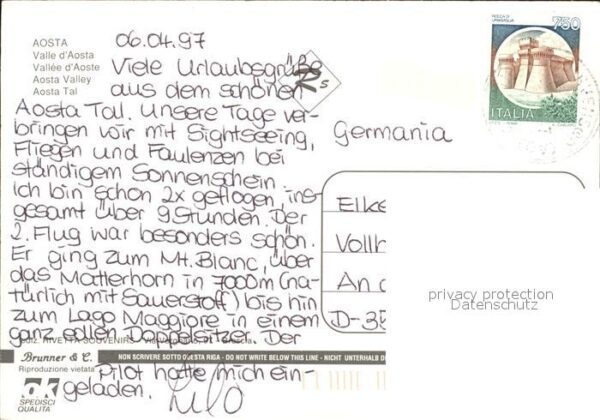 AOSTA
Valle d'Aosta
Vallée d'Aoste
Aosta Valley
Aosta Tal
06.04.97
Viele Urlaubsgrüße
aus dem schönen
Aosta Tal. Unsere Tage ver-
bringen wir mit Sightseeing,
Fliegen und Faulenzen bei
ständigem Sonnenschein.
Ich bin schon 2x geflogen, ins-
gesamt über 9 Stunden. Der
2. Flug war besonders schön.
Er ging zum Mt. Blanc, über
das Matterhorn in 7000m (na-
türlich mit Sauerstoff) bis hin
zum Lago Maggiore in einem
ganz edlen Doppelsitzer. Der
Pilot hatte mich ein-
geladen. Lilo
ROCCA DI
URBISAGLIA
750
ITALIA
Germania
Elke
Vollh
An d
D-35
privacy protection
Datenschutz
Ediz. RIVETTA SOUVENIRS
Brunner & C.
Riproduzione vietata
NON SCRIVERE SOTTO QUESTA RIGA - DO NOT WRITE BELOW THIS LINE - NICHT UNTERHALB D
ok
SPEDISCI
QUALITA